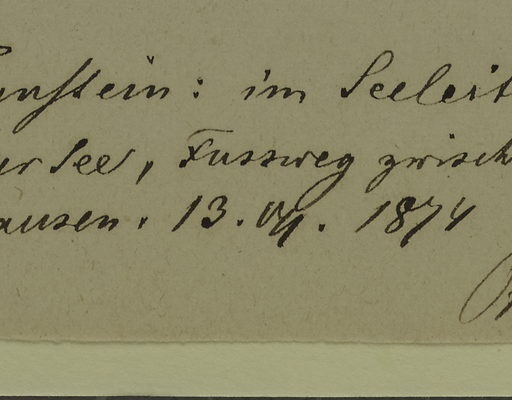 nstein: im Seeleit
ur See, Fussweg zwisch
ausen. 13. 1874